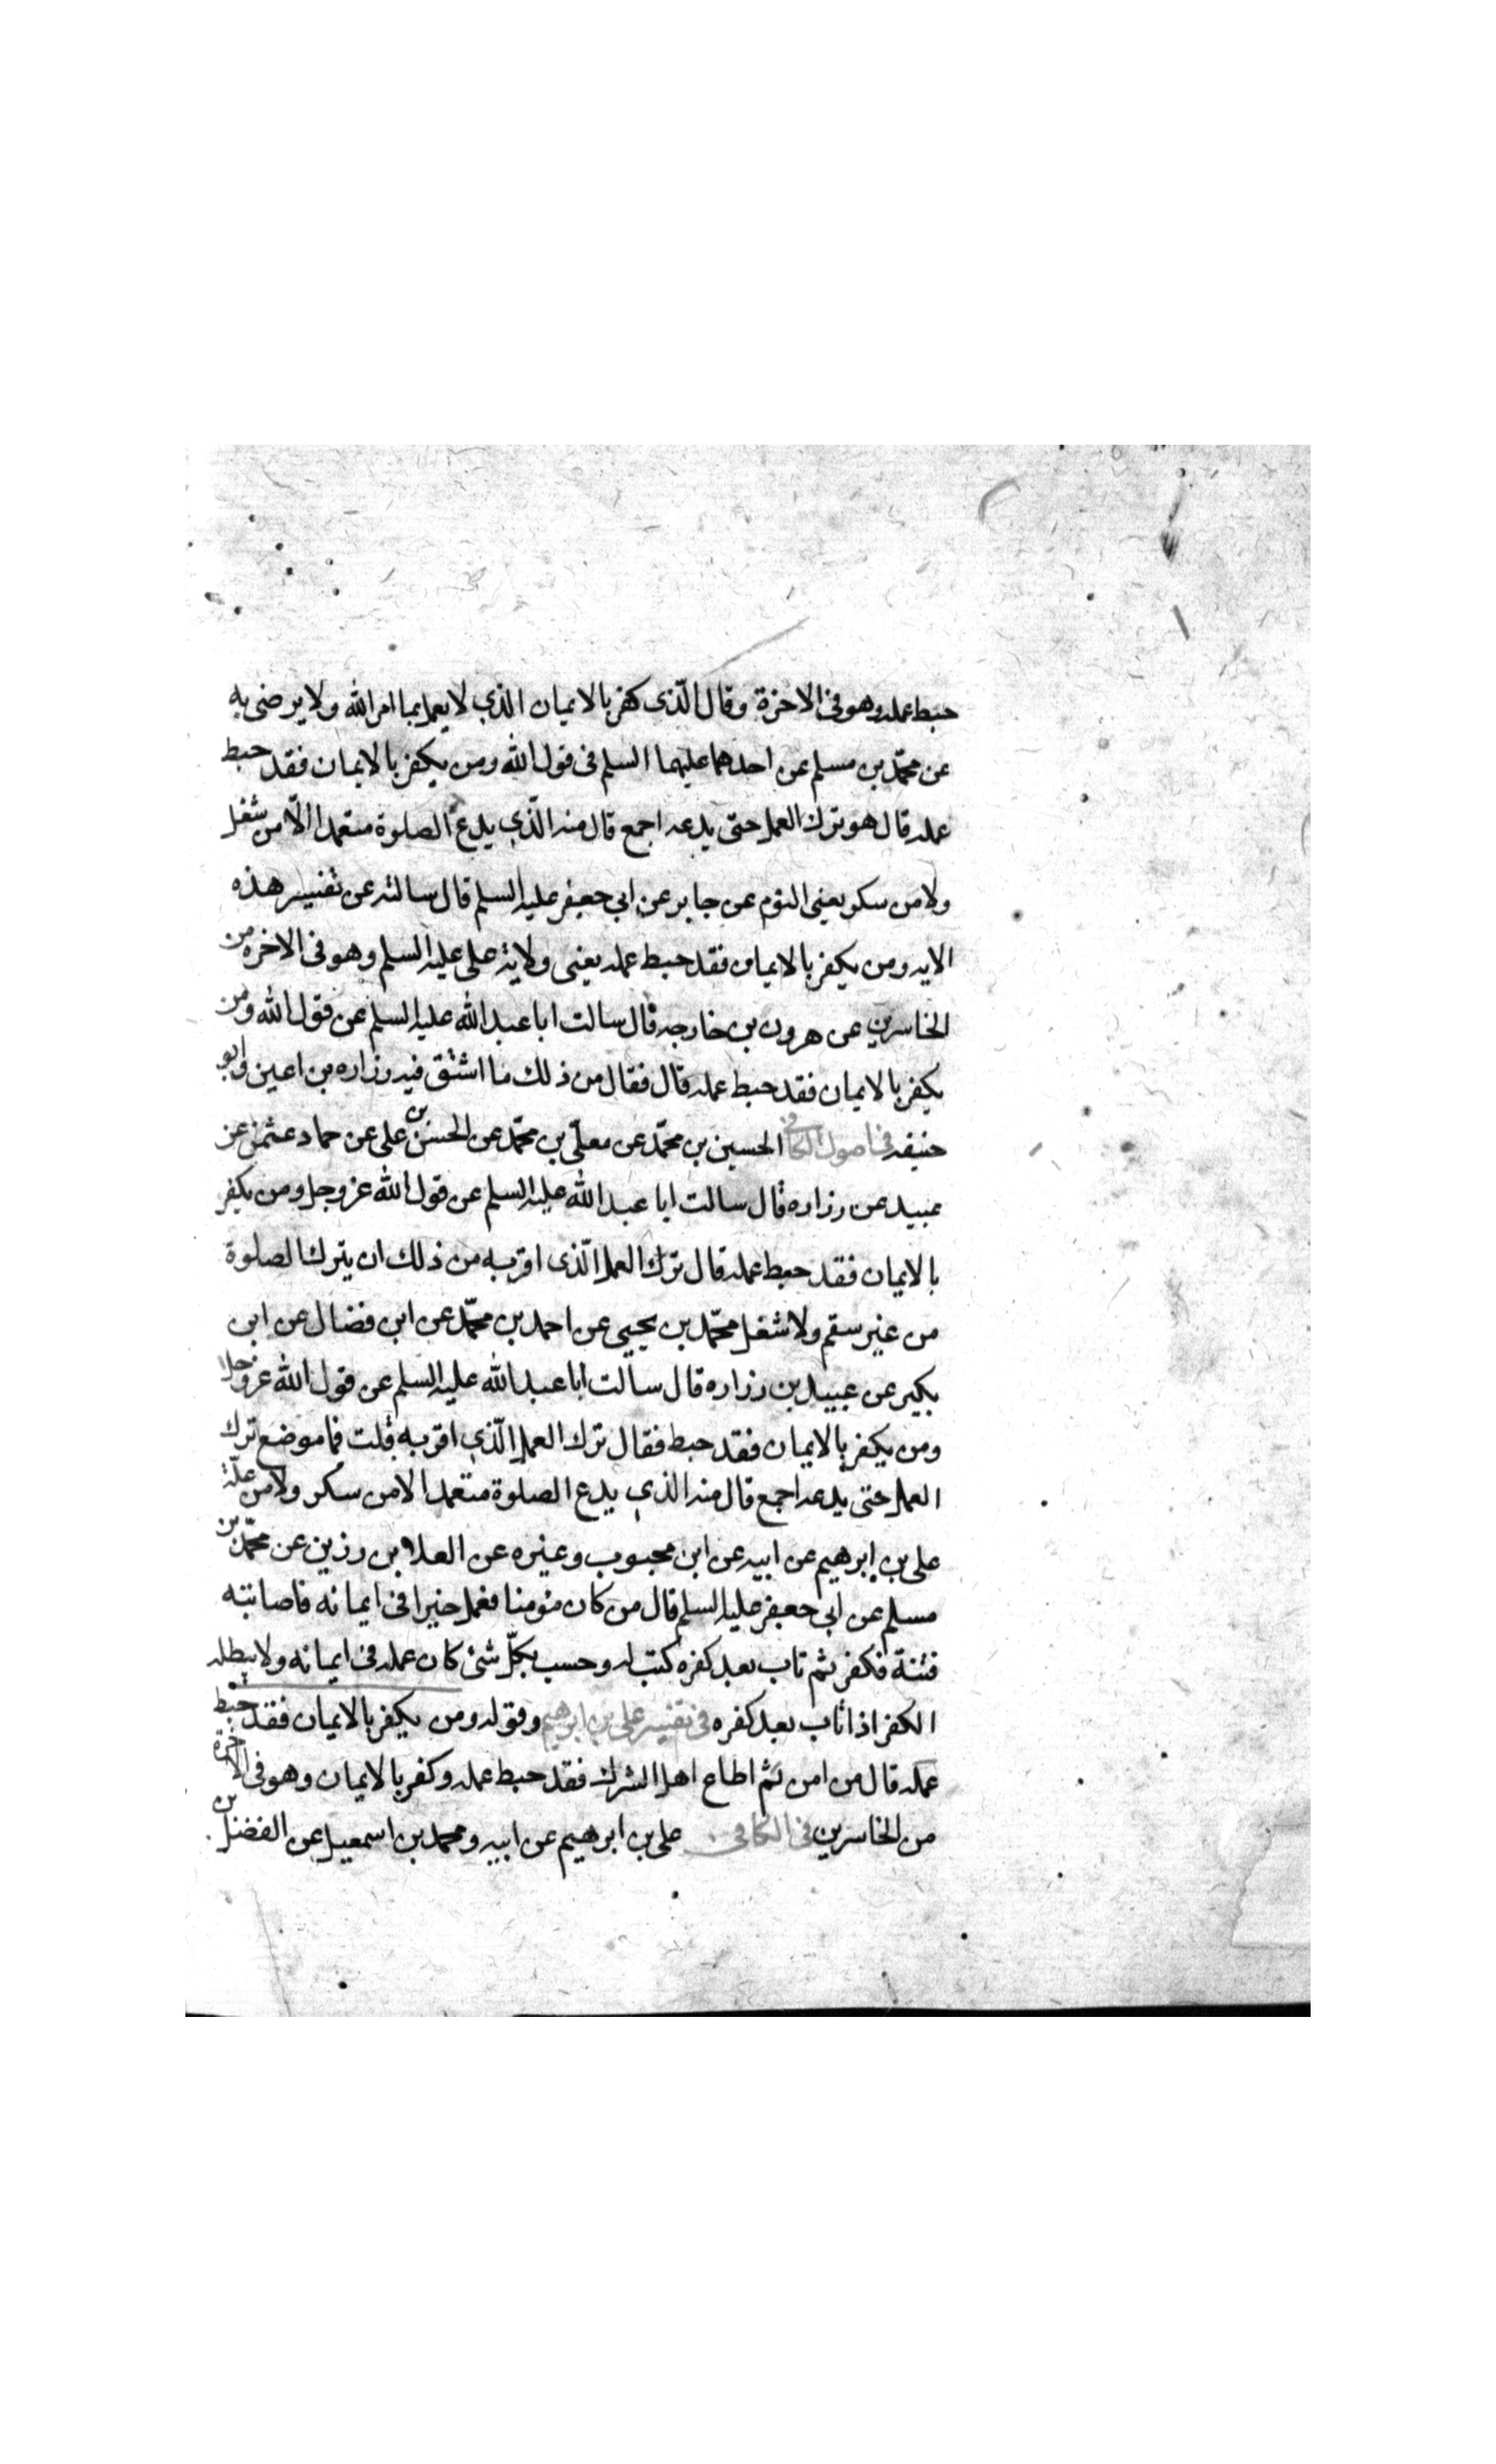 حبط عمله وهو فى الاخرة وقال الّذى كفر بالايمان الذي لا يعمل بما امر الله ولا يرضى به
عن محمّد بن مسلم عن احدهما عليهما السلم فى قول الله ومن يكفر بالايمان فقد حبط
عمله قال هو ترك العمل حتى يدعه اجمع قال منه الّذي يدع الصلوة متعمدا الّا من شغل
ولا من سكر يعنى النوم عن جابر عن ابي جعفر عليه السلم قال سالته عن تفسير هذه
الايه ومن يكفر بالايمان فقد حبط عمله يعنى ولاية على عليه السلم وهو فى الاخره من
الخاسرين عن هرون بن خارجه قال سالت ابا عبد الله عليه السلم عن قول الله ومن
يكفر بالايمان فقد حبط عمله قال فقال من ذلك ما اشتق فيه زراره بن اعين وابو
حنيفه فى اصول الكافى الحسين بن محمّد عن معلّى بن محمّد عن الحسن بن على عن حماد عثمن عن
عبيد عن زراره قال سالت ابا عبد الله عليه السلم عن قول الله عز وجل ومن يكفر
بالايمان فقد حبط عمله قال ترك العمل الّذى اقر به من ذلك ان يترك الصلوة
من غير سقم ولا شغل محمّد بن يحيى عن احمد بن محمّد عن ابن فضال عن ابن
بكير عن عبيد بن زراره قال سالت ابا عبد الله عليه السلم عن قول الله عز وجل
ومن يكفر بالايمان فقد حبط فقال ترك العمل الّذي اقر به قلت فما موضع ترك
العمل حتى يدعه اجمع قال منه الذي يدع الصلوة متعمدا لا من سكر ولا من علّة
على بن ابرهيم عن ابيه عن ابن محبوب وغيره عن العلا بن رزين عن محمّد بن
مسلم عن ابى جعفر عليه السلم قال من كان مؤمنا فعمل خيرا فى ايمانه فاصابته
فتنة فكفر ثم تاب بعد كفره كتب له وحسب بكلّ شئ كان عمله فى ايمانه ولا يبطله
الكفر اذا تاب بعد كفره فى تفسير على بن ابرهيم وقوله ومن يكفر بالايمان فقد حبط
عمله قال من امن ثم اطاع اهل الشرك فقد حبط عمله وكفر بالايمان وهو فى الاخرة
من الخاسرين فى الكافى على بن ابرهيم عن ابيه ومحمد بن اسمعيل عن الفضل بن